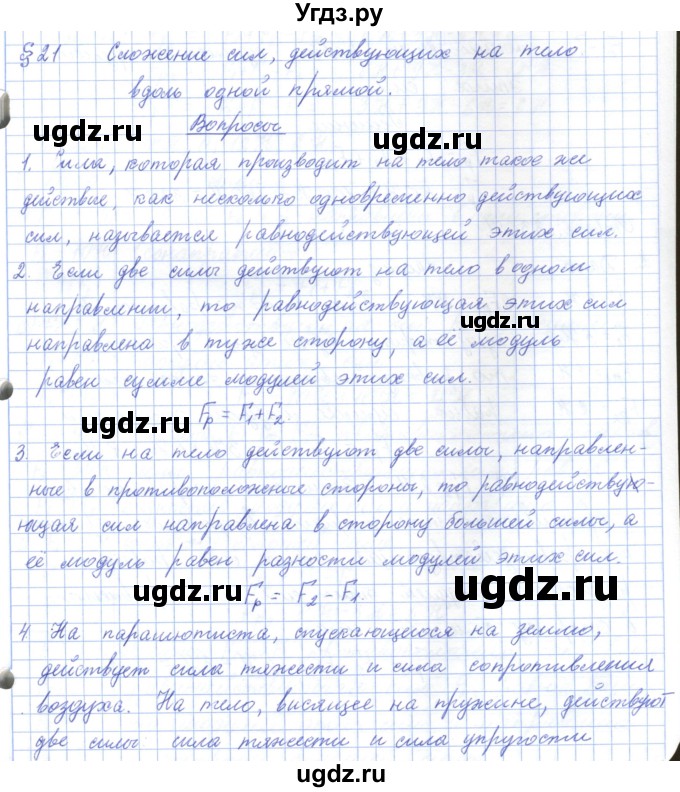 Угдз.ру
§ 21 Сложение сил, действующих на тело
вдоль одной прямой.
ugdz.ru
ugdz.ru
Вопросы
1. Сила, которая производит на тело такое же
действие, как несколько одновременно действующих
сил, называется равнодействующей этих сил.
2. Если две силы действуют на тело в одном
направлении, то равнодействующая этих сил
ugdz.ru
направлена в ту же сторону, а её модуль
равен сумме модулей этих сил.
ugdz.ru
Fр = F1 + F2.
3. Если на тело действуют две силы, направлен-
ные в противоположные стороны, то равнодейству-
ющая сил направлена в сторону большей силы, а
её модуль равен разности модулей этих сил.
ugdz.ru
ugdz.ru
Fр = F2 - F1.
4 На парашютиста, спускающегося на землю,
действует сила тяжести и сила сопротивления
воздуха. На тело, висящее на пружине, действуют
две силы сила тяжести и сила упругости
ugdz.ru